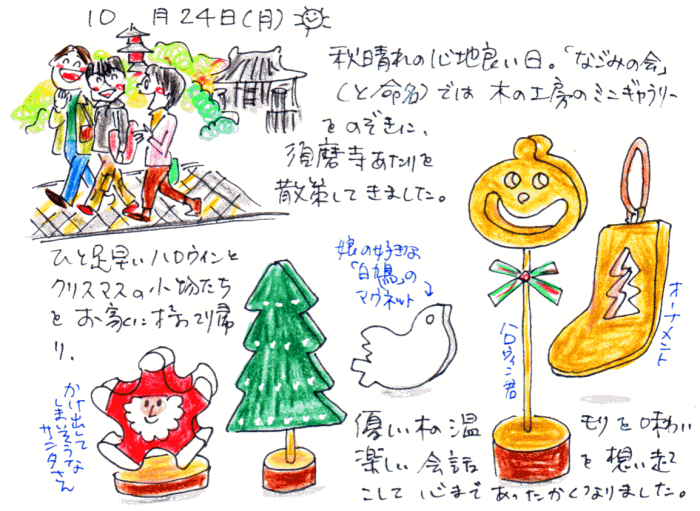 10月24日(月)
秋晴れの心地良い日。「なごみの会」
(と命名)では 木の工房のミニギャラリー
をのぞきに、
須磨寺あたりを
散策してきました。
ひと足早いハロウィンと
クリスマスの小物たち
を お家に持って帰
り、
娘の好きな
「白鳩」の
マグネット
オーナメント
ハロウィン君
かけ出して
しまいそうな
サンタさん
優しい木の温もりを味わい
楽しい会話を想い起
こして心まであったかくなりました。